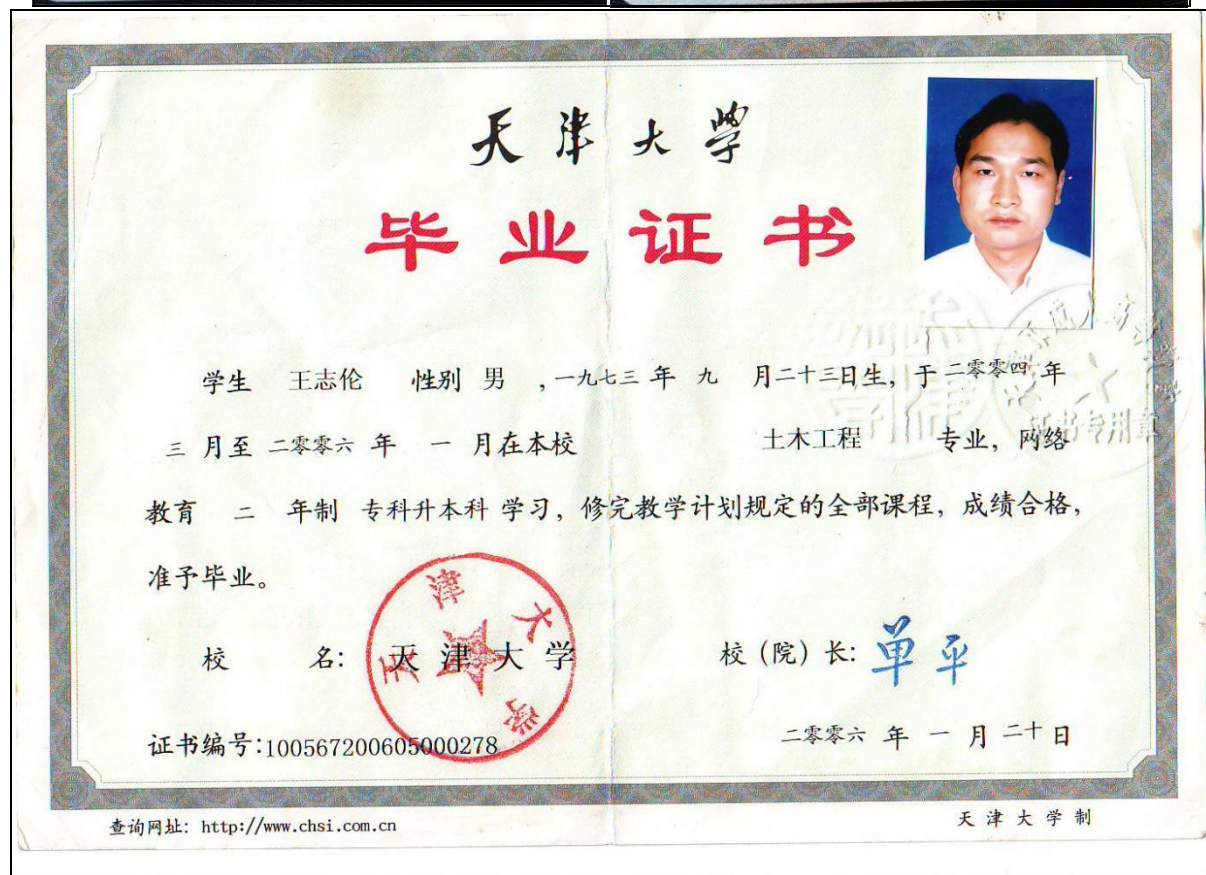 天津大学
毕业证书
学生 王志伦 性别 男 ,一九七三 年 九 月二十三日生,于 二零零四 年
三 月至 二零零六 年 一 月在本校 土木工程 专业,网络
教育 二 年制 专科升本科 学习,修完教学计划规定的全部课程,成绩合格,
准予毕业。
校 名: 天津大学
天津大学
校(院)长: 单平
证书编号:100567200605000278
二零零六 年 一 月 二十 日
查询网址: http://www.chsi.com.cn
天津大学制
证书专用章